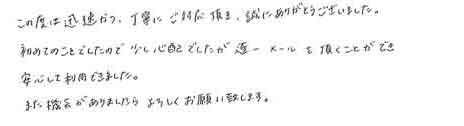 この度は迅速かつ、丁寧にご対応頂き、誠にありがとうございました。
初めてのことでしたので少し心配でしたが逐一メールを頂くことができ
安心して利用できました。
また機会がありましたらよろしくお願い致します。